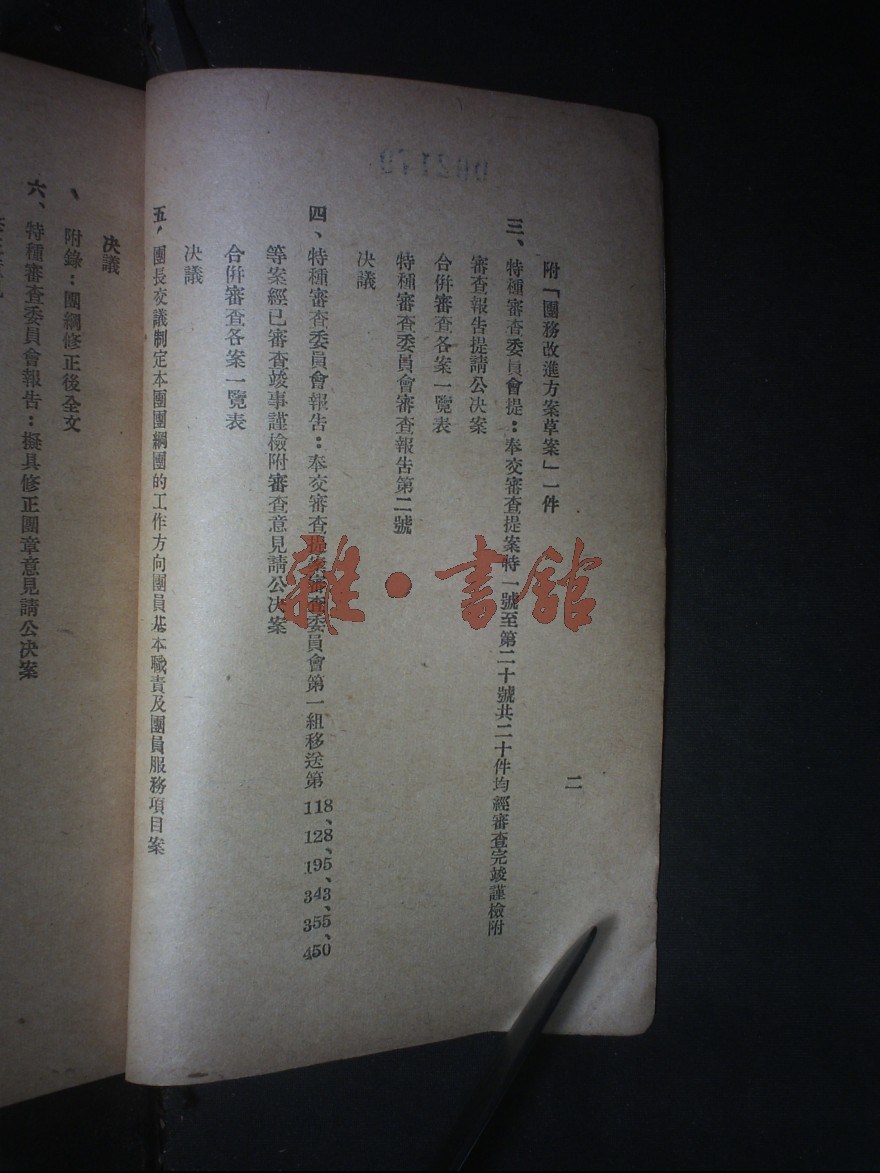 二
附「團務改進方案草案」一件
三、特種審查委員會提：奉交審查提案特一號至第二十號共二十件均經審查完竣謹檢附
審查報告提請公決案
合併審查各案一覽表
特種審查委員會審查報告第二號
決議
四、特種審查委員會報告：奉交審查提案審查委員會第一組移送第118、128、195、343、355、450
等案經已審查竣事謹檢附審查意見請公決案
合併審查各案一覽表
決議
五，團長交議制定本團團綱團的工作方向團員基本職責及團員服務項目案
決議
附錄：團綱修正後全文
六、特種審查委員會報告：擬具修正團章意見請公決案
雜·書館